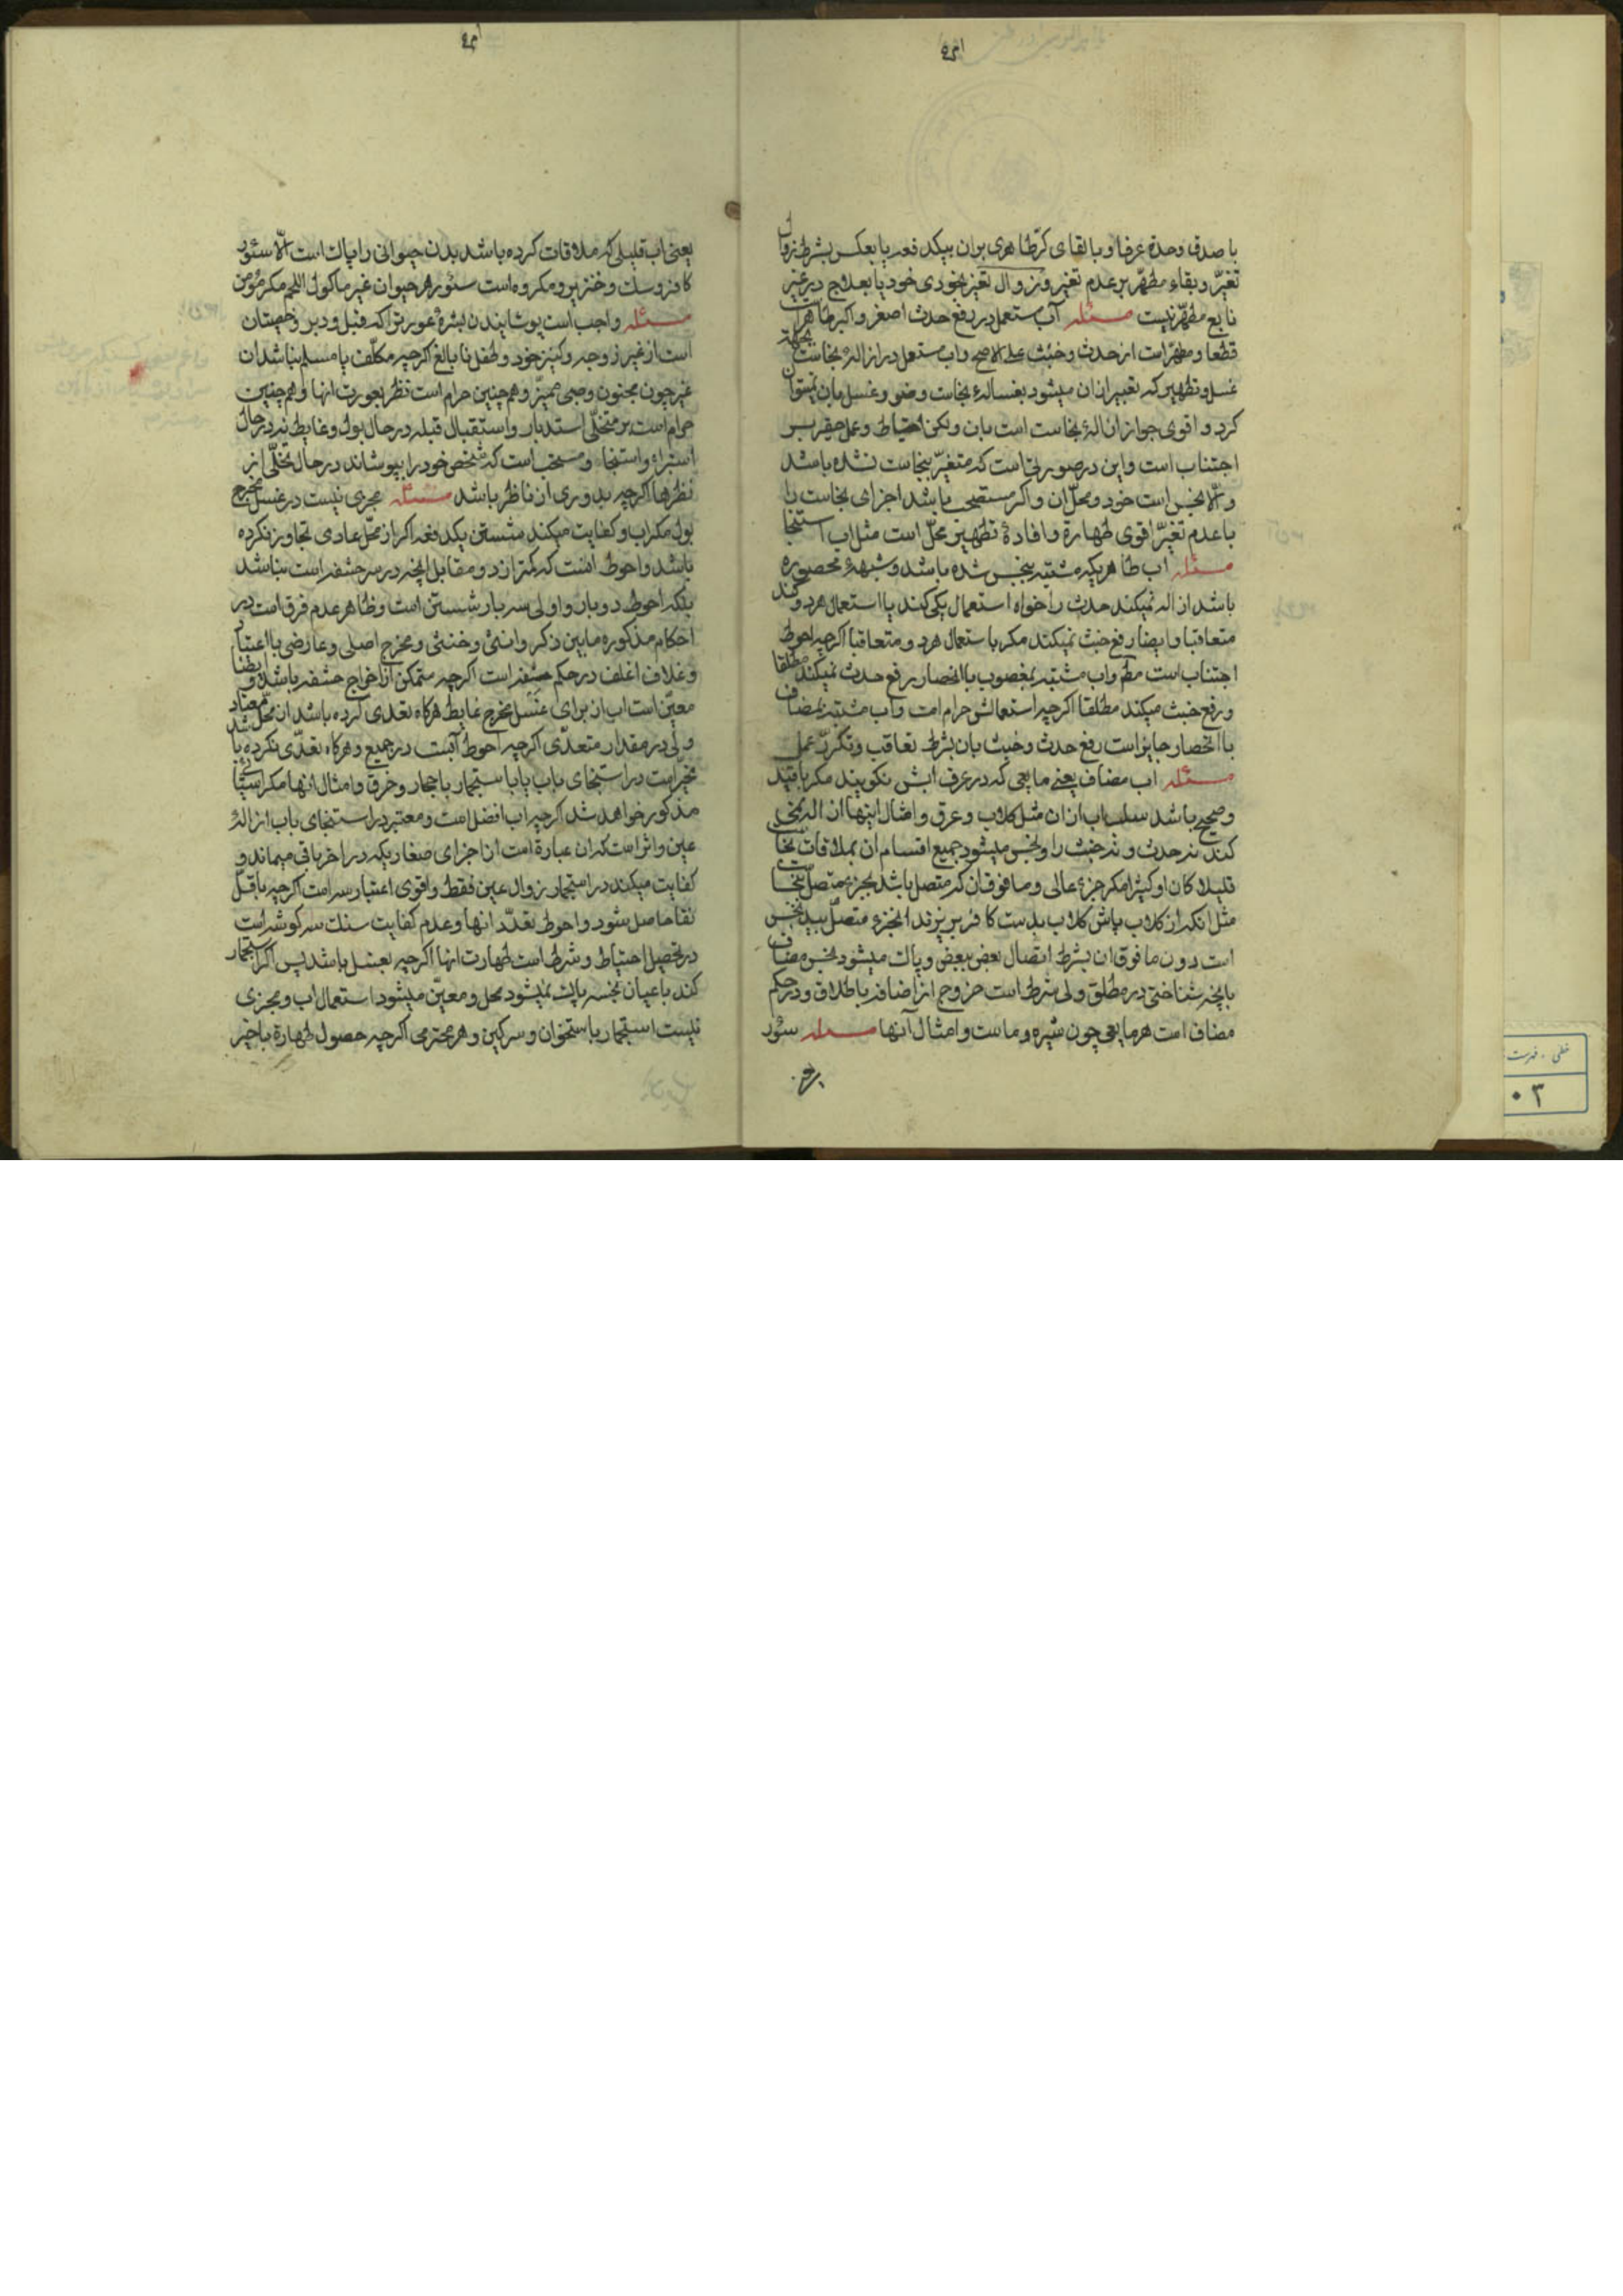 با صدق وحدة عرفا و با لقای کرّ طاهری بران بیکدفعه یا بعکس بشرط زوال
تغیّر و بقاء مطهّر بر عدم تغیر و زوال تغیّر بخودی خود یا بعلاج در غیر
نابع مطهّر نیست مسئله آب مستعمل در رفع حدث اصغر و اکبر طاهر است
قطعا و مطهّر است از حدث و خبث علی الاصح و اب مستعمل در ازالهٔ نجاست بجهة
غسل و تطهیر که تعبیر از ان میشود بغسالهٔ نجاست وضو و غسل بان نمیتوان
کرد و اقوی جواز ازالهٔ نجاست است بان ولکن احتیاط و عمل حقیر بر
اجتناب است و این در صورتی است که متغیّر بنجاست نشده باشد
والّا نجس است خود و محلّ ان و اکر مستصحب باشد اجزای نجاست را
با عدم تغیّر اقوی طهارة و افادهٔ تطهیر محلّ است مثل اب استنجا
مسئله اب طاهریکه مشتبه بنجس شده باشد و شبههٔ محصوره
باشد ازاله نمیکند حدث را خواه استعمال یکی کند یا استعمال هر دو کند
متعاقبا و ایضا رفع خبث نمیکند مکر باستعمال هر دو متعاقبا اکرچه احوط
اجتناب است مطم واب مشتبه بمغصوب با انحصار رفع حدث نمیکند مطلقا
و رفع خبث میکند مطلقا اکرچه استعمالش حرام است واب مشتبه بمضاف
با انحصار جایز است رفع حدث و خبث بان بشرط تعاقب و تکرّر عمل
مسئله اب مضاف یعنی مایعی که در عرف ابش نکویند مکر با قید
و صحیح باشد سلب اب از ان مثل کلاب و عرق و امثال اینها ازاله نمی
کند نه حدث و نه خبث را و نجس میشود جمیع اقسام ان بملاقات نجاست
قلیلا کان او کثیرا مکر جزء عالی و ما فوق ان که متصل باشد بجزء متصل بنجاست
مثل انکه از کلاب پاش کلاب بدست کافر بریزند انجزء متصل بید نجس
است دون ما فوق ان بشرط اتصال بعض ببعض و پاک میشود نجس مضاف
بانچه شناختی در مطلق ولی شرط است خروج از اضافه باطلاق و در حکم
مضاف است هر مایعی چون شیره و ماست و امثال آنها مسئله سؤر
یعنی اب قلیلی که ملاقات کرده باشد بدن حیوانی را پاک است الّا سئور
کافر و سک و خنزیر و مکروه است سئور هر حیوان غیر ماکول اللحم مکر مؤمن
مسئله واجب است پوشانیدن بشرهٔ عورترا که قبل و دبر و خصیتان
است از غیر زوجه و کنیز خود و طفل نابالغ اکرچه مکلّف یا مسلم نباشد ان
غیر چون مجنون و صبی ممیّز و همچنین حرام است نظر بعورت انها و همچنین
حرام است بر متخلّی استدبار و استقبال قبله در حال بول و غایط نه در حال
استبراء و استنجا و مستحب است که شخص خود را بپوشاند در حال تخلّی از
نظرها اکرچه بدوری از ناظر باشد مسئله مجزی نیست در غسل مخرج
بول مکر اب و کفایت میکند شستن یکدفعه اکر از محّل عادی تجاوز نکرده
باشد و احوط انست که کمتر از دو مقابل انچه در سر حشفه است نباشد
بلکه احوط دو بار و اولی سه بار شستن است و ظاهر عدم فرق است در
احکام مذکوره ما بین ذکر و انثی و خنثی و مخرج اصلی و عارضی با اعتیاد
و غلاف اغلف در حکم حشفه است اکرچه متمکن از اخراج حشفه باشد و ایضا
معیّن است اب از برای غسل مخرج غایط هرکاه تعدی کرده باشد از محل معتاد
ولی در مقدار متعدّی اکرچه احوط آبست در جمیع و هرکاه تعدّی نکرده باشد
مخیّر است در استنجای باب یا باستجمار باحجار و خرق و امثال انها مکر اشیا
مذکور خواهد شد اکرچه اب افضل است و معتبر در استنجای باب ازالهٔ
عین و اثر است که ان عبارة است از اجزای صغاریکه در اخر باقی میماند و
کفایت میکند در استجمار زوال عین فقط و اقوی اعتبار سه است اکرچه باقلّ
نقا حاصل شود و احوط تعدّد انها و عدم کفایت سنک سه کوشه است
در تحصیل احتیاط و شرط است طهارت انها اکرچه بغسل باشد پس اکر استجمار
کند باعیان نجسه پاک نمیشود محل و معیّن میشود استعمال اب و مجزی
نیست استجمار باستخوان و سرکین و هر محترمی اکرچه حصول طهارة باخیر
خطی . فهرست
۰۳